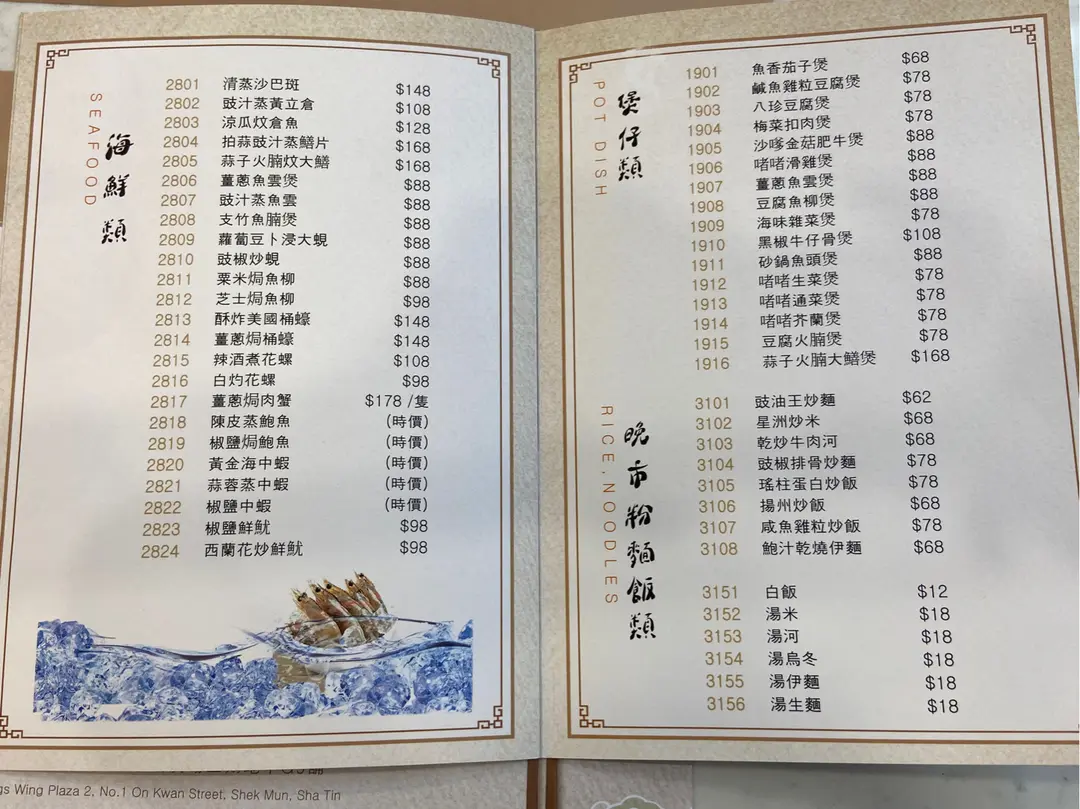 SEAFOOD
海鮮類
2801 清蒸沙巴斑 $148
2802 豉汁蒸黃立倉 $108
2803 涼瓜炆倉魚 $128
2804 拍蒜豉汁蒸鱔片 $168
2805 蒜子火腩炆大鱔 $168
2806 薑蔥魚雲煲 $88
2807 豉汁蒸魚雲 $88
2808 支竹魚腩煲 $88
2809 蘿蔔豆卜浸大蜆 $88
2810 豉椒炒蜆 $88
2811 粟米焗魚柳 $88
2812 芝士焗魚柳 $98
2813 酥炸美國桶蠔 $148
2814 薑蔥焗桶蠔 $148
2815 辣酒煮花螺 $108
2816 白灼花螺 $98
2817 薑蔥焗肉蟹 $178 /隻
2818 陳皮蒸鮑魚 (時價)
2819 椒鹽焗鮑魚 (時價)
2820 黃金海中蝦 (時價)
2821 蒜蓉蒸中蝦 (時價)
2822 椒鹽中蝦 (時價)
2823 椒鹽鮮魷 $98
2824 西蘭花炒鮮魷 $98
POT DISH
煲仔類
1901 魚香茄子煲 $68
1902 鹹魚雞粒豆腐煲 $78
1903 八珍豆腐煲 $78
1904 梅菜扣肉煲 $78
1905 沙嗲金菇肥牛煲 $88
1906 啫啫滑雞煲 $88
1907 薑蔥魚雲煲 $88
1908 豆腐魚柳煲 $88
1909 海味雜菜煲 $78
1910 黑椒牛仔骨煲 $108
1911 砂鍋魚頭煲 $88
1912 啫啫生菜煲 $78
1913 啫啫通菜煲 $78
1914 啫啫芥蘭煲 $78
1915 豆腐火腩煲 $78
1916 蒜子火腩大鱔煲 $168
RICE, NOODLES
晚市粉麵飯類
3101 豉油王炒麵 $62
3102 星洲炒米 $68
3103 乾炒牛肉河 $68
3104 豉椒排骨炒麵 $78
3105 瑤柱蛋白炒飯 $78
3106 揚州炒飯 $68
3107 咸魚雞粒炒飯 $78
3108 鮑汁乾燒伊麵 $68
3151 白飯 $12
3152 湯米 $18
3153 湯河 $18
3154 湯烏冬 $18
3155 湯伊麵 $18
3156 湯生麵 $18
Wing Plaza 2, No.1 On Kwan Street, Shek Mun, Sha Tin